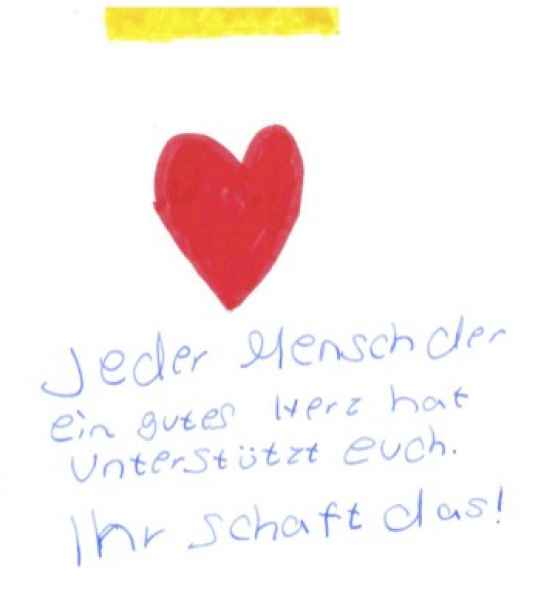 Jeder Mensch der
ein gutes Herz hat
Unterstützt euch.
Ihr schaft das!